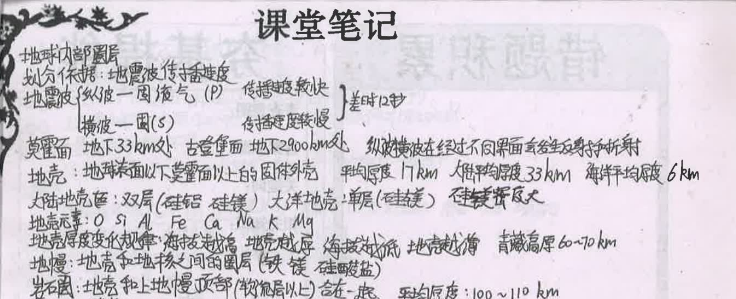 课堂笔记
地球内部圈层
划分依据:地震波传播速度
地震波 纵波—固液气(P) 传播速度较快
横波—固(S) 传播速度较慢 差时12秒
莫霍面 地下33km处 古登堡面 地下2900km处 纵波横波在经过不同界面会发生反射和折射
地壳:地球表面以下莫霍面以上的固体外壳 平均厚度17km 大陆平均厚度33km 海洋平均厚度6km
大陆地壳:双层(硅铝 硅镁) 大洋地壳:单层(硅镁) 硅镁密度大
地壳元素:O Si Al Fe Ca Na K Mg
地壳厚度变化规律:海拔越高 地壳越厚 海拔越低 地壳越薄 青藏高原60~70km
地幔:地壳和地核之间的圈层(铁 镁 硅酸盐)
岩石圈:地壳和上地幔顶部(软流层以上)合在一起 平均厚度:100~110km